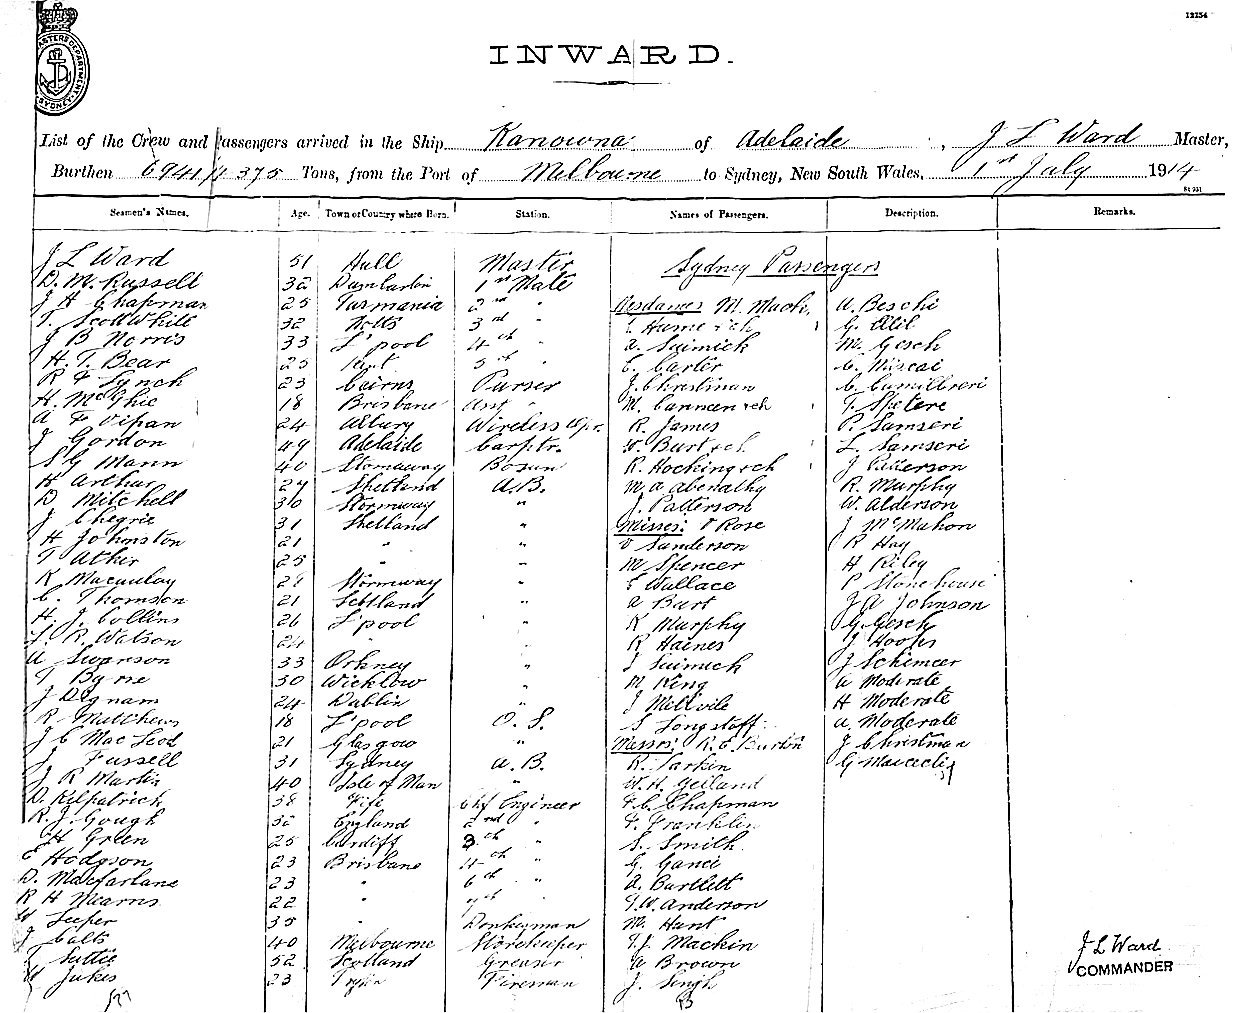 12254
MASTERS DEPARTMENT SYDNEY
INWARD.
List of the Crew and Passengers arrived in the Ship Kanowna of Adelaide, J L Ward Master,
Burthen 6941/4375 Tons, from the Port of Melbourne to Sydney, New South Wales, 1st July 1914
St 931
Seamen's Names. Age. Town or Country where Born. Station. Names of Passengers. Description. Remarks.
J L Ward 51 Hull Master Sydney Passengers
D. M. Russell 32 Dumbarton 1st Mate
J H Chapman 25 Tasmania 2nd " Mesdames M. Mack, A. Beschi
T. Scott White 32 Notts 3rd " Hume & ch G.
J B Norris 33 L'pool 4th " A. Suimick M. Gesch
H. T. Bear 25 Kent 5th " E. Carter C. Miscai
R F Lynch 23 Cairns Purser J. Christman C. Camilleri
H. McGhie 18 Brisbane Asst " M. Cannon & ch T. Spetere
A F Vipan 24 Albury Wireless Opr. R. James P. Samseri
J Gordon 49 Adelaide Carptr. W. Burt & ch. L. Samseri
S G Mann 40 Stornaway Bosun R. Hocking & ch J Patterson
H Arthur 27 Shetland A.B. M. A Abenathy R. Murphy
D Mitchell 30 Stornway " J. Patterson W. Alderson
J Chegrie 31 Shetland " Misses: Rose J McMahon
H Johnston 21 " " V Sanderson R Hay
T Atkir 25 " " M Spencer H Riley
K Macaulay 28 Stornway " E Wallace P Stonehouse
C. Thomson 21 Scotland " A Burt J A Johnson
H. J. Collins 26 L'pool " K Murphy G. Gesch
L. R. Watson 24 " " R Haines J Hooks
A Swanson 33 Orkney " J Suimick J Schimeer
T Byrne 30 Wicklow " M King A Moderate
J Dignam 24 Dublin " J Mellvile H Moderate
R Matthews 18 L'pool O. S. S Longstaff A. Moderate
J C MacLeod 21 Glasgow " Messrs: R. E. Burton J Christman
J Fussell 31 Sydney A. B. R. Larkin G
J R Martin 40 Isle of Man " W. H. Geiland
D. Kilpatrick 38 Fife Chf Engineer F. C. Chapman
R. J. Gough 32 England 2nd " F. Franklin
H Green 25 Cardiff 3th " S. Smith
C Hodgson 23 Brisbane 4th " G. Ganci
D. Macfarlane 23 " 6th " A. Bartlett
R H Mearns 22 " 7th " T. W. Anderson
W Leeper 35 Donkeyman M. Hunt
J Calts 40 Melbourne Storekeeper T. J. Mackin
Suttie 52 Scotland Greaser A Brown
W Jukes 23 Fireman J. Singh
J L Ward
COMMANDER